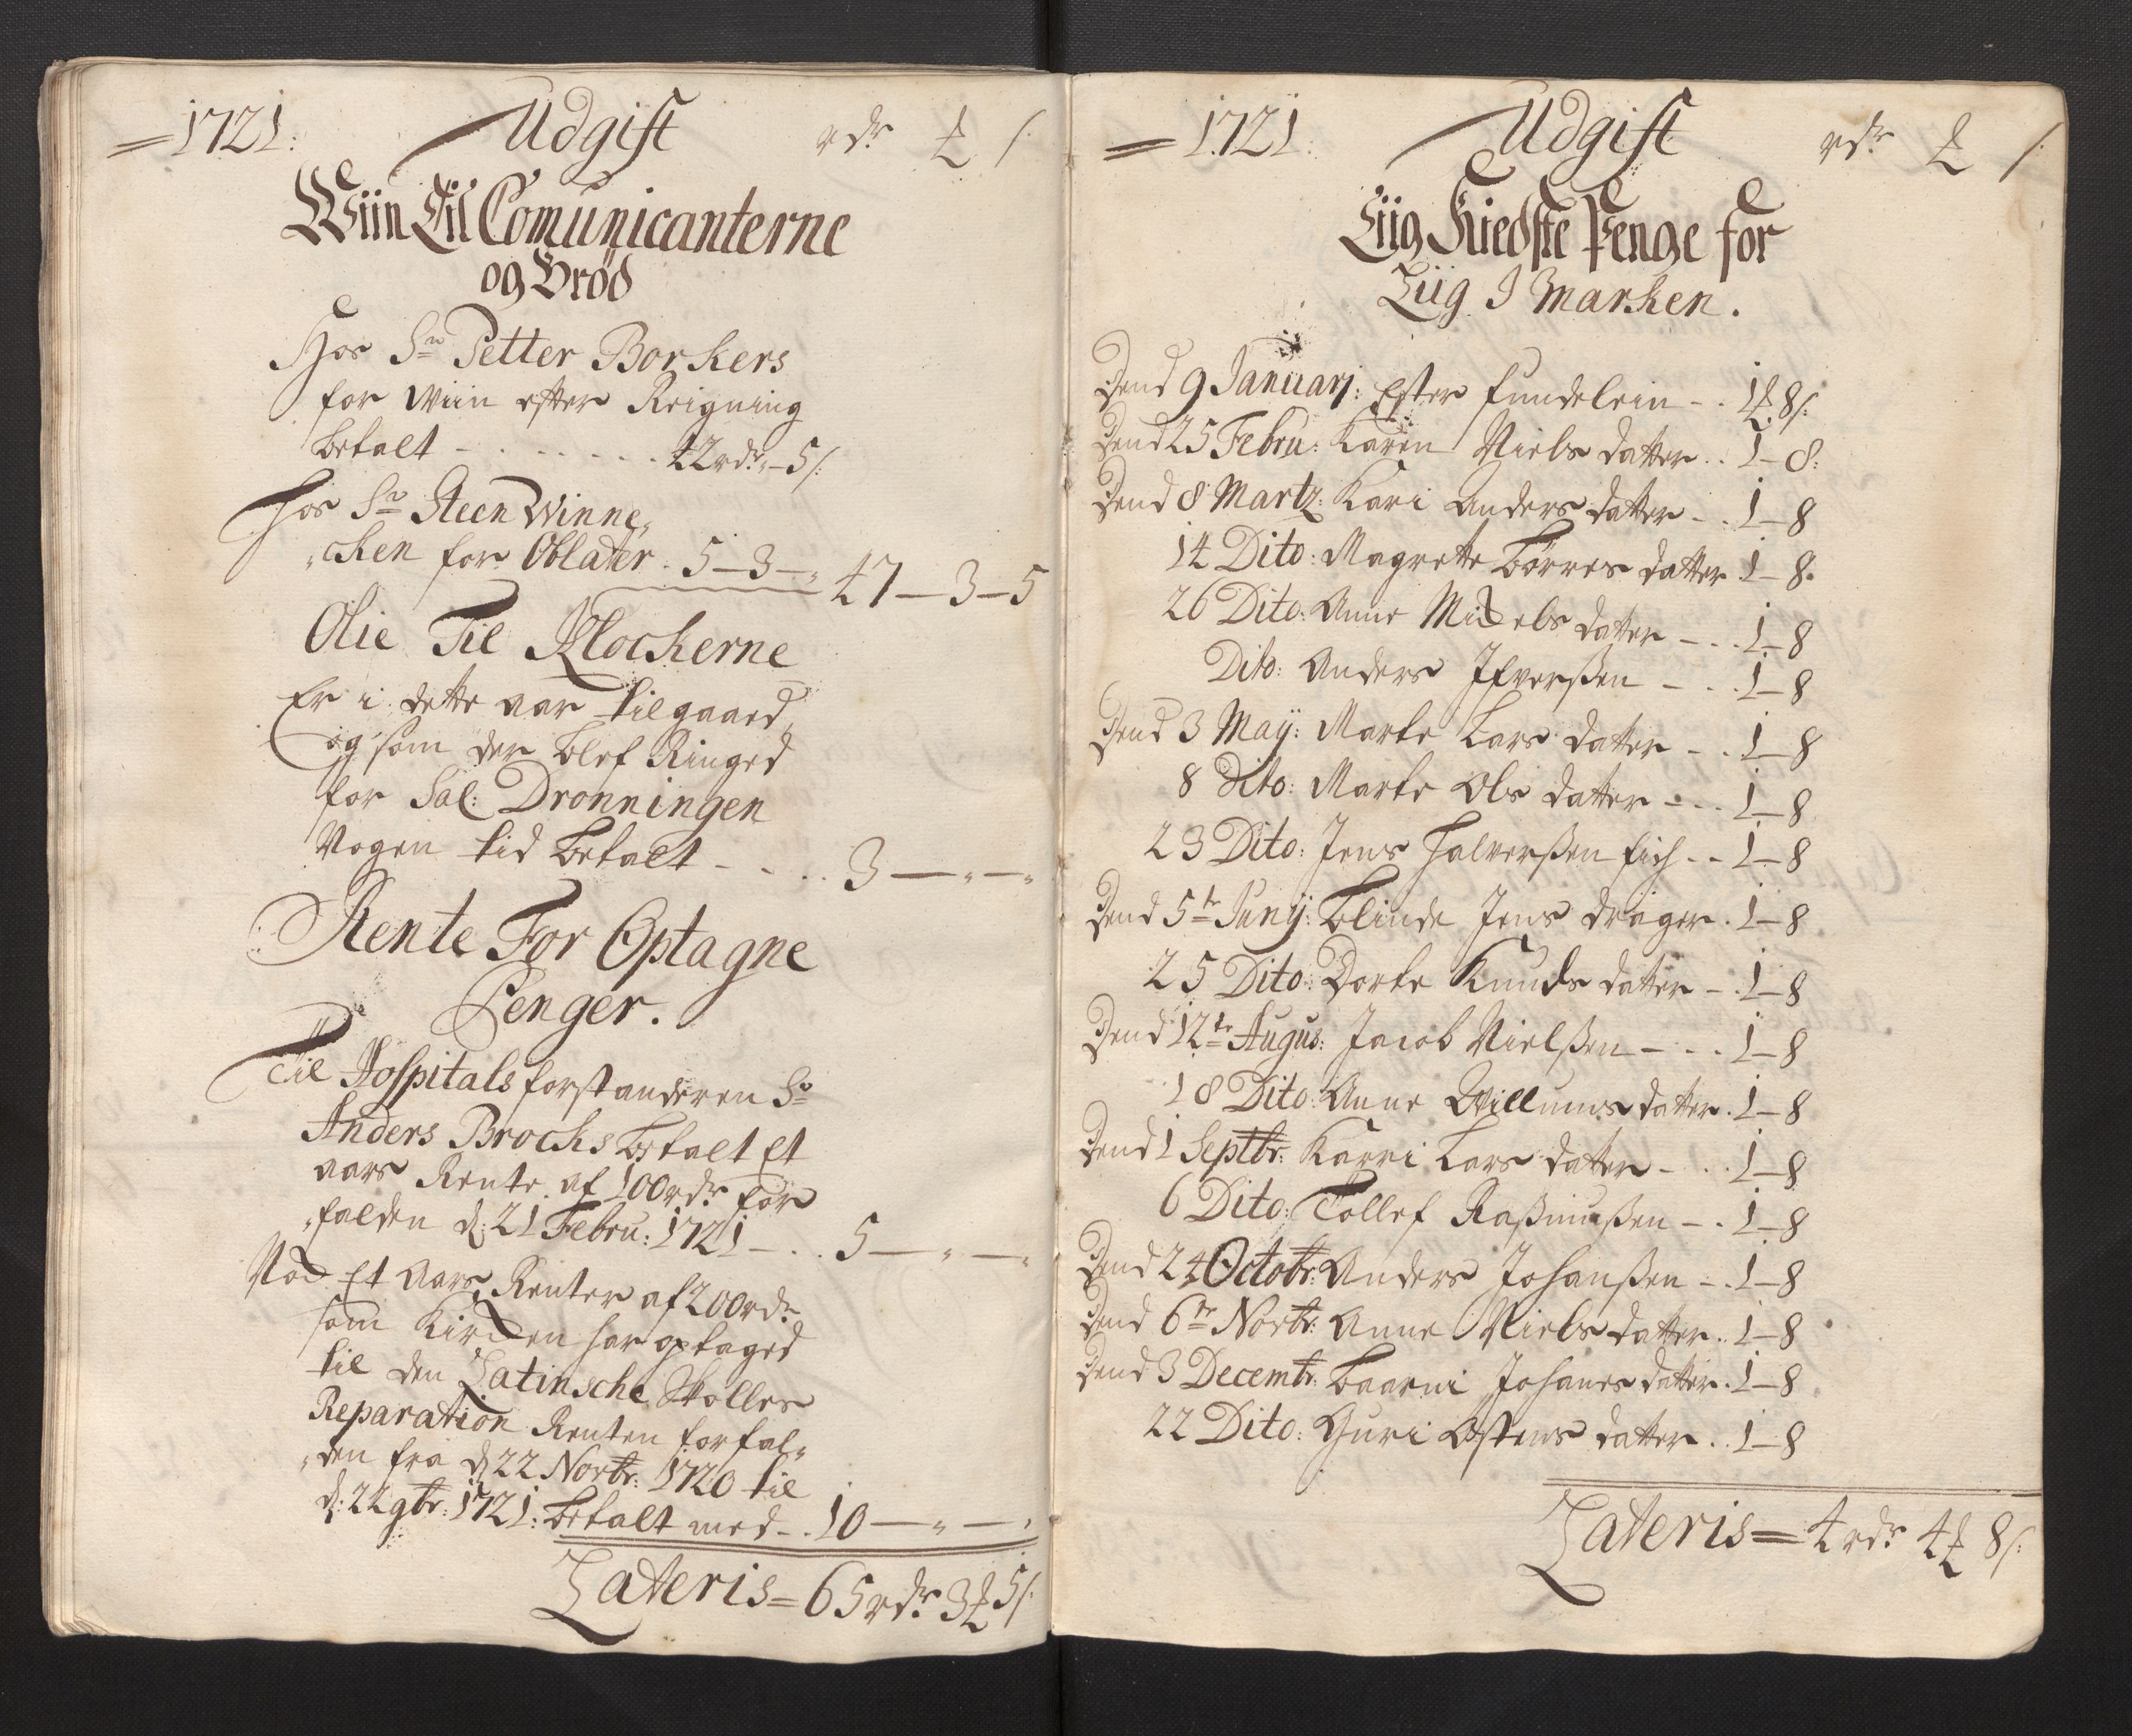 1721. Udgift rdr ₰ /:
Wiin Til Comunicanterne
og Brød
Hos Sr Petter Borkers
for Wiin efter Reigning
betalt - - - - - 42rdr - 5/:
Hos Sr Steen Winne„
„chen for Oblater. 5-3-„ 47-3-5
Olie Til Klockerne
Er i dette aar tilgaaed,
og som der blef Ringed
for Sal: Dronningen
Nogen tid betalt - - - 3-„-„
Rente For Optagne
Penger.
Til Hospitals forstanderen Sr
Anders Brochs betalt Et
aars Rente af 100rdr for
„falden d: 21 Febru: 1721 - - - 5-„-„
Noch Et Aars Renter af 200rdr
som Kirchen har optaged
til den Latinsche Skolles
Reparation Renten forfal„
„den fra d: 22 Novbr: 1720 til
d: 22 9br: 1721: betalt med - - 10-„-„
Lateris = 65rdr 3₰ 5/:
1721. Udgift rdr ₰ /:
Liig Kiedste Penge for
Liig I Marken.
Dend 9 Januarj: Ester fundelein - - 1₰ 8/:
Dend 25 Febru: Karen Niels datter - - 1-8:
Dend 8 Martz: Kari Anders datter - - 1-8
14 Dito: Magrette Børres datter 1-8.
26 Dito: Anne Michels datter - - - 1-8
Dito: Anders Ifverßen - - - 1-8
Dend 3 Maij: Marte Lars datter - - 1-8
8 Dito: Marte Ols datter - - - 1-8
23 Dito: Jens Halverßen fich - - 1-8
Dend 5te Junij: Blinde Jens drager. 1-8
25 Dito: Dorte Knuds datter - - 1-8
Dend 12te Augus: Jacob Nielßen - - - 1-8
18 Dito: Anne Willums datter. 1-8
Dend 1 Septbr: Karri Lars datter - - - 1-8
6 Dito: Tollef Raßmußen - - 1-8
Dend 24 Octobr: Anders Johanßen - - 1-8
Dend 6te Novbr: Anne Niels datter - - 1-8
Dend 3 Decembr: Baarni Johanes datter. 1-8
22 Dito: Guri Ostens datter - - 1-8
Lateris = 4rdr 4₰ 8/: